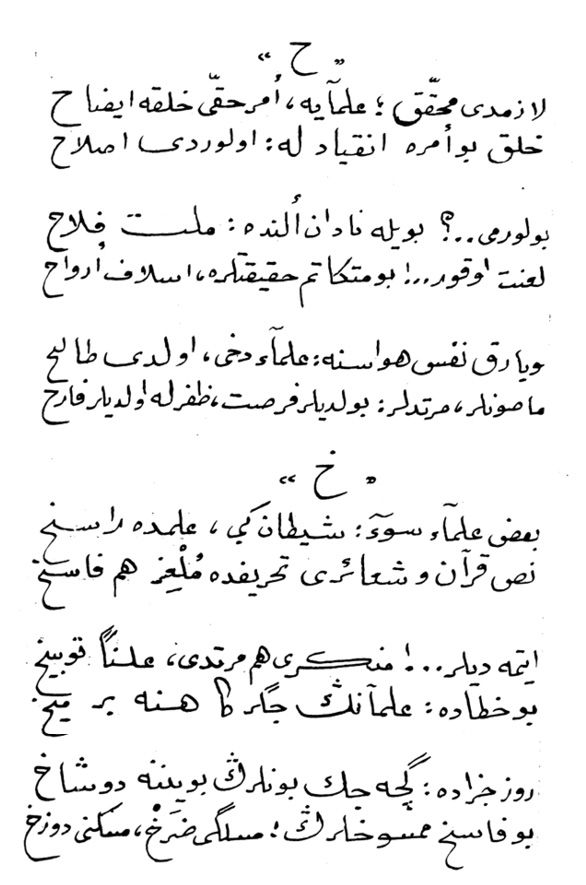 « ح »
لازمدى محقّق ؛ علمآيه، أمر حقّى خلقه ايضاح
خلق بو أمره انقياد له : اولوردى اصلاح
بولورمى..؟ بويله نادان ألنده : ملت فلاح
لعنت اوقور...! بو متكاتم حقيقتلره، اسلاف أرواح
ويارق نفس هواسنه : علمآء دخى، اولدى طالح
ماصونلر، مرتدلر : بولديلر فرصت، ظفرله اولديلر فارح
« خ »
بعض علمآء سوٓء : شيطان كبى ، علمده راسخ
نص قرآن و شعائرى تحريفده مُلْغِز هم فاسخ
ايتمه ديلر...! منكرى هم مرتدى، علناً توبيخ
بو خطاده : علمآنڭ جگرگاهنه بر ميخ
روز جزاده : گچه جك بونلرڭ بويننه دوشاخ
بو فاسخ ممسوخلرڭ ؛ مسلگى ضَرَخْ، مسكنى دوزخ